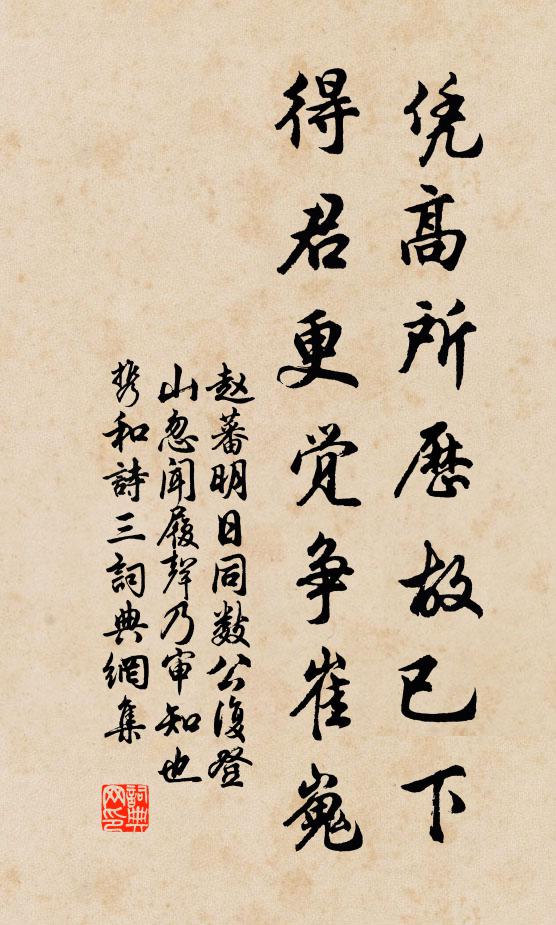 凭高所歷故已下
得君更覺争崔嵬
赵蕃明日同数公復登
山忽闻履聲乃审知也
携和詩三詞典網集
詞典网印